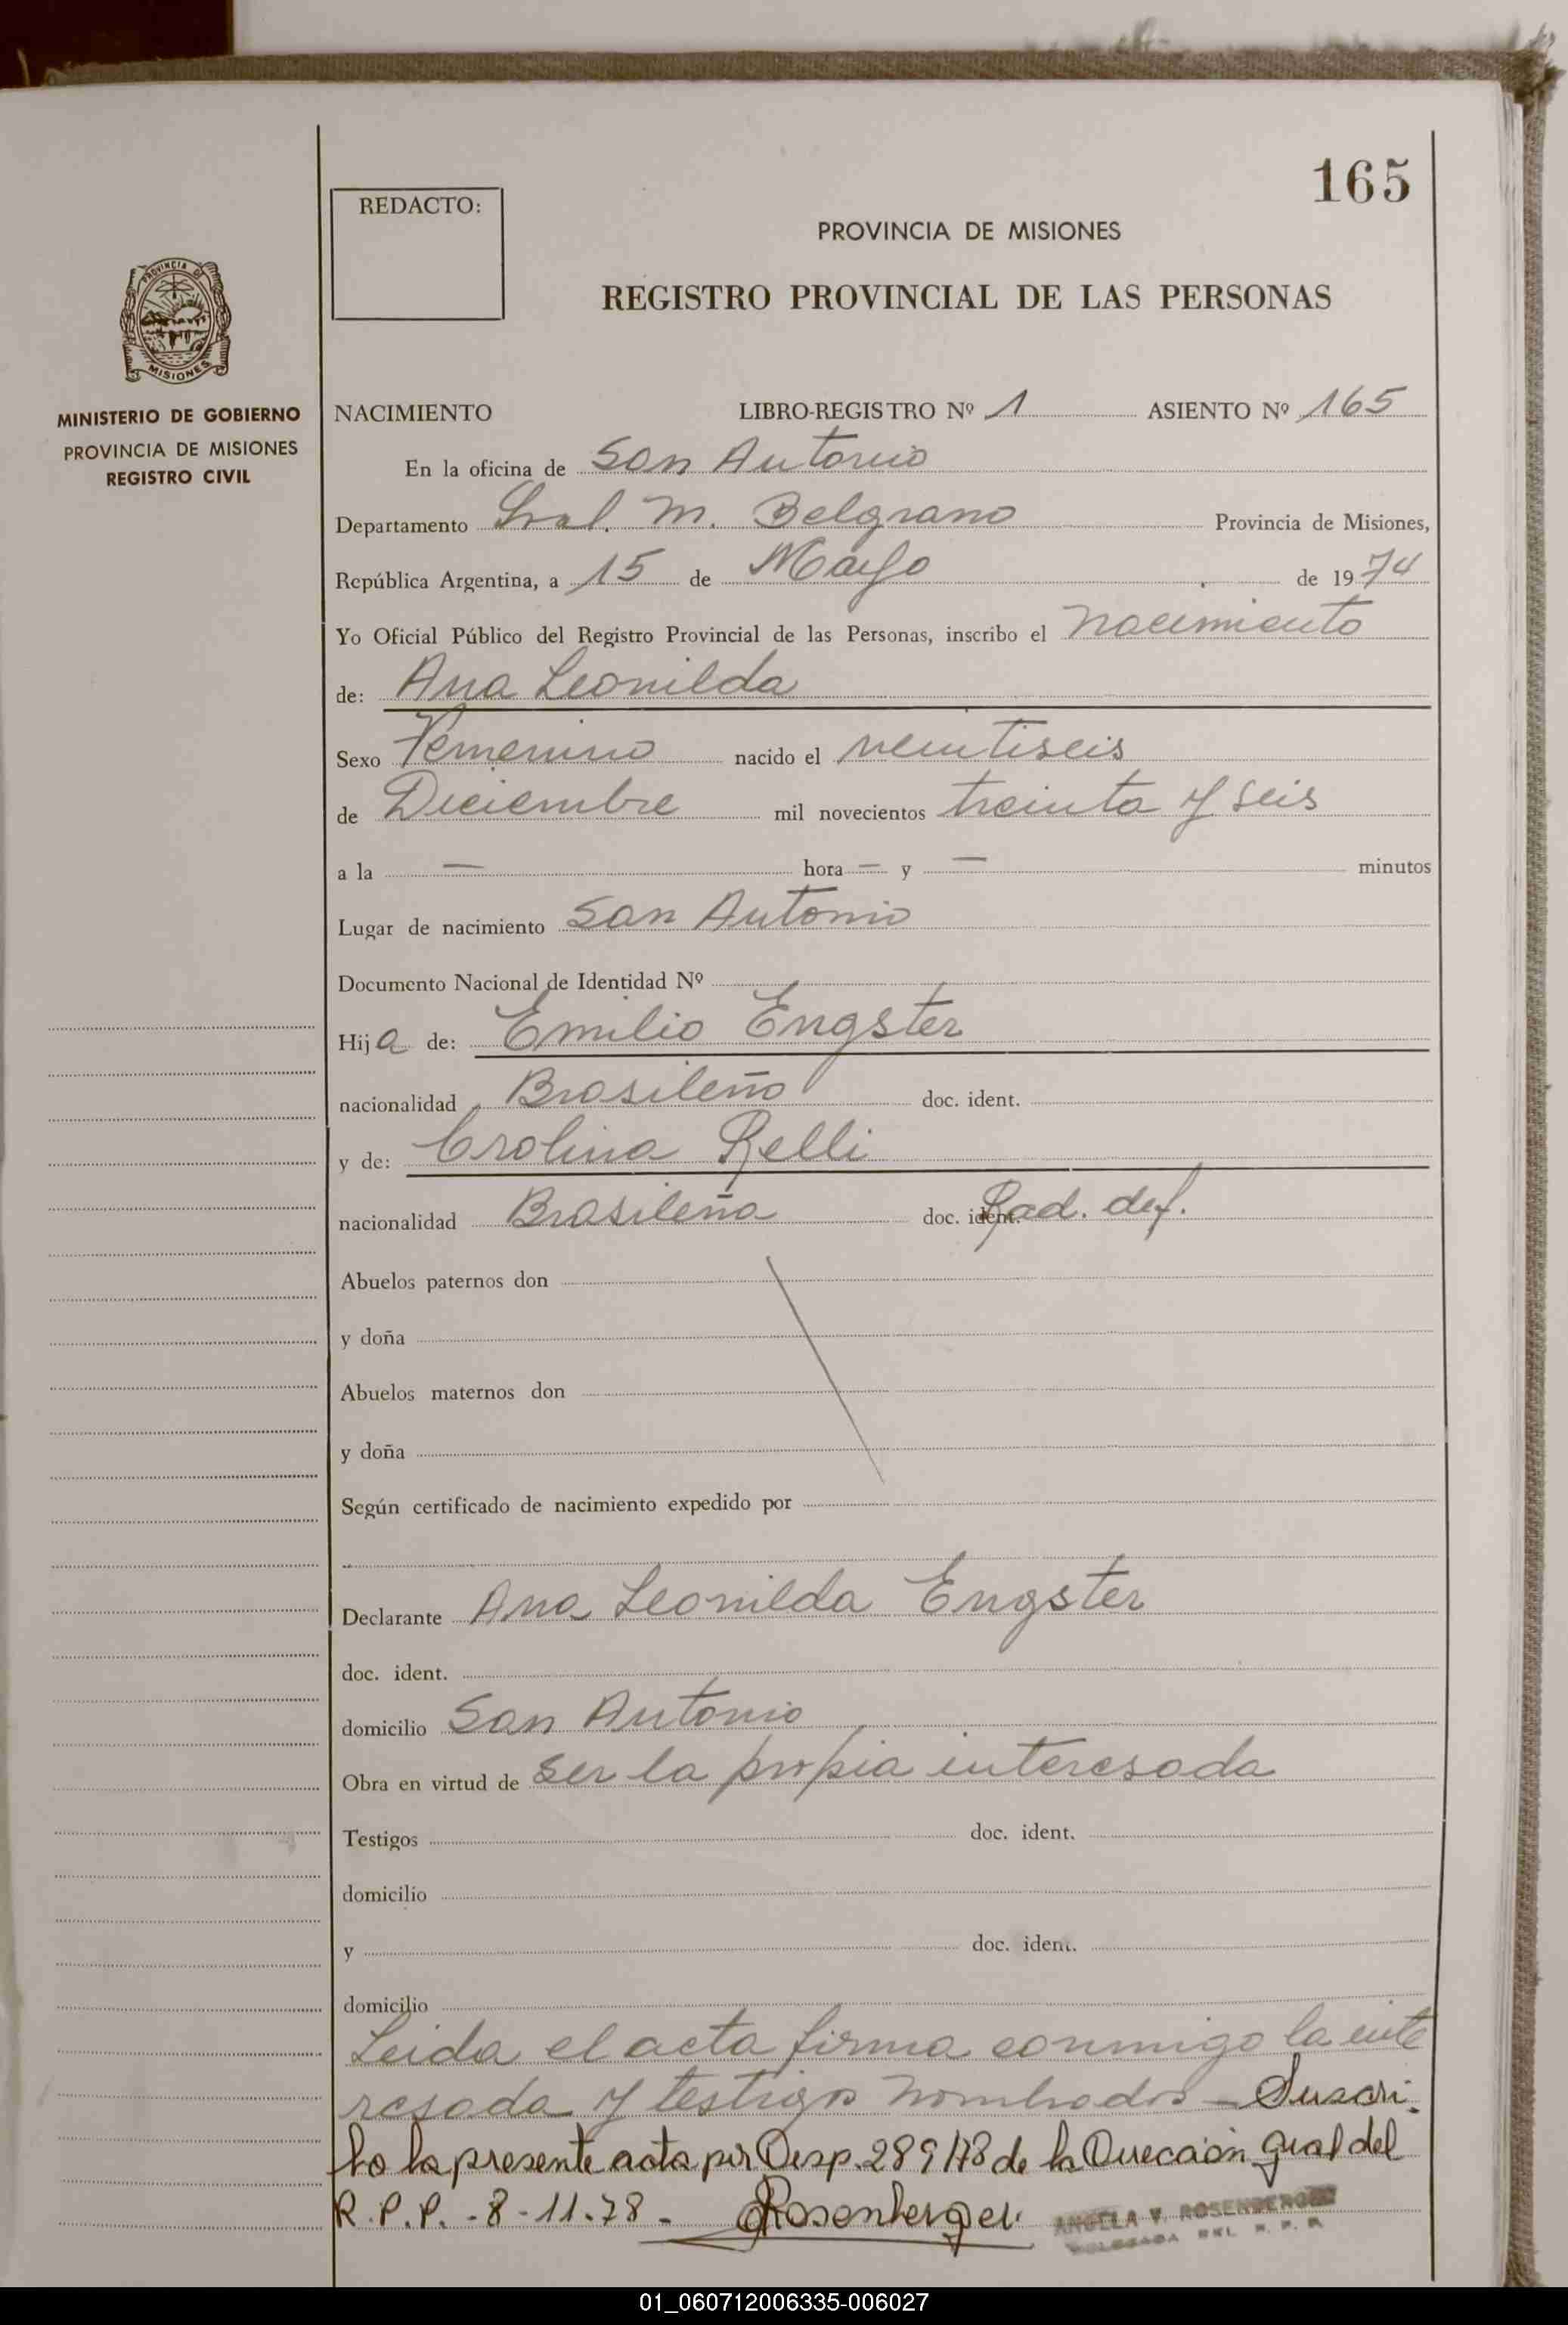 165
REDACTO:
PROVINCIA DE MISIONES
REGISTRO PROVINCIAL DE LAS PERSONAS
PROVINCIA DE
MISIONES
MINISTERIO DE GOBIERNO
PROVINCIA DE MISIONES
REGISTRO CIVIL
NACIMIENTO LIBRO-REGISTRO Nº 1 ASIENTO Nº 165
En la oficina de San Antonio
Departamento Gral. M. Belgrano Provincia de Misiones,
República Argentina, a 15 de Mayo de 1974
Yo Oficial Público del Registro Provincial de las Personas, inscribo el nacimiento
de: Ana Leonilda
Sexo Femenino nacido el veintiseis
de Diciembre mil novecientos treinta y seis
a la — hora — y — minutos
Lugar de nacimiento San Antonio
Documento Nacional de Identidad Nº
Hija de: Emilio Engster
nacionalidad Brasileño doc. ident.
y de: Crolina Relli
nacionalidad Brasileña doc. ident. Rad. def.
Abuelos paternos don
y doña
Abuelos maternos don
y doña
Según certificado de nacimiento expedido por
Declarante Ana Leonilda Engster
doc. ident.
domicilio San Antonio
Obra en virtud de ser la propia interesada
Testigos doc. ident.
domicilio
y doc. ident.
domicilio
Leida el acta firma conmigo la inte
resada y testigos nombrados - Suscri-
to la presente acta por Desp. 289/78 de la Dirección gral del
R.P.P. - 8-11-78 - Rosenberger
ANGELA V. ROSENBERGER
DELEGADA DEL R. P. P.
01_060712006335-006027